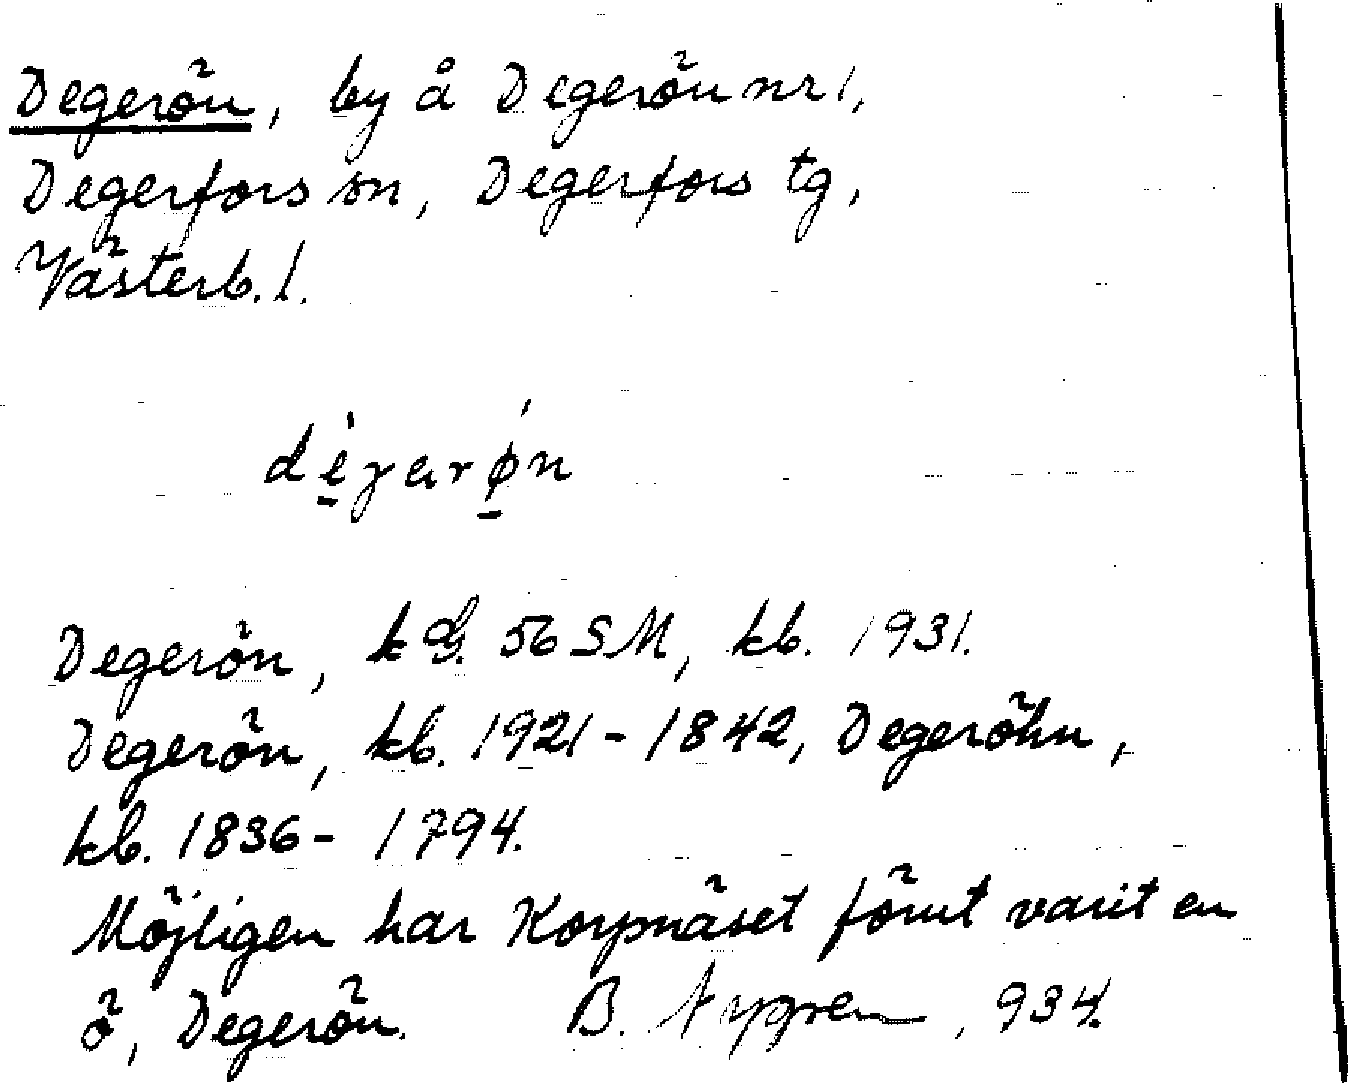 Degerön, by å Degerön nr 1,
Degerfors sn, Degerfors tg,
Västerb. l.
Degerön, kbl. 56 SM, kb. 1931.
Degerön, kb. 1921-1842, Degeröhn,
kb. 1836-1794.
Möjligen har Korpnäset förut varit en
ö, Degerön. B. Nygren, 934.